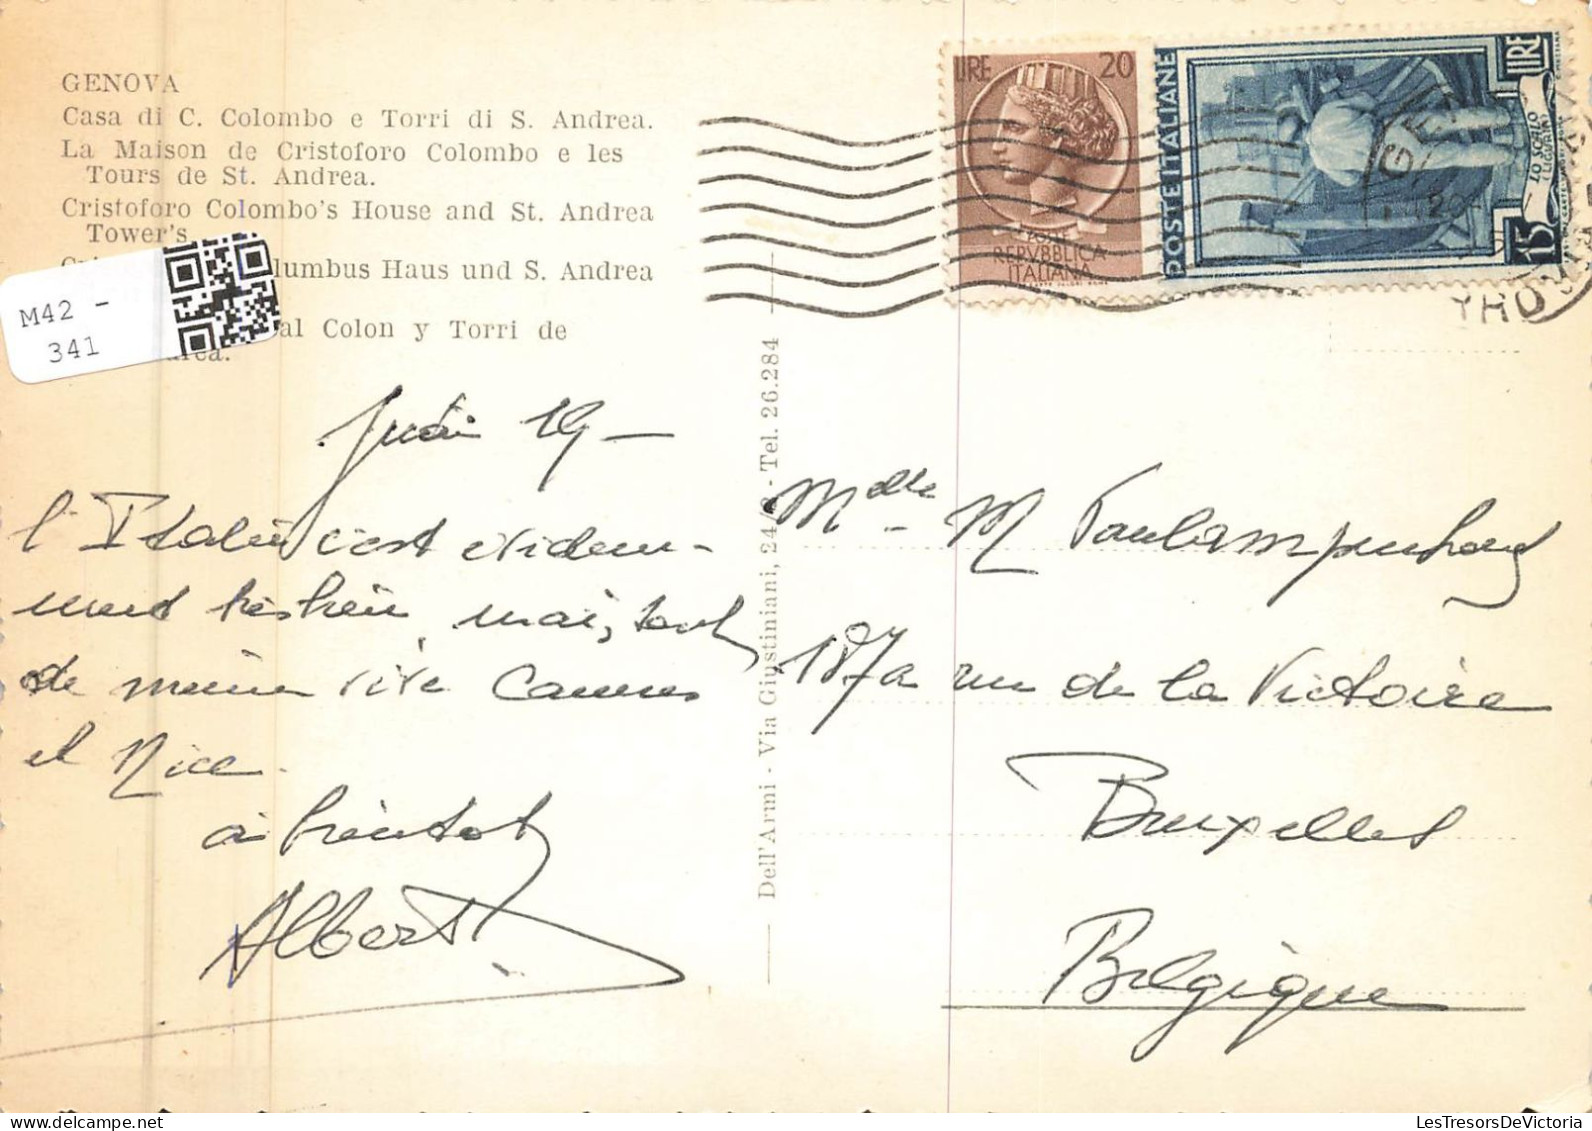 GENOVA
Casa di C. Colombo e Torri di S. Andrea.
La Maison de Cristoforo Colombo e les
Tours de St. Andrea.
Cristoforo Colombo's House and St. Andrea
Tower's
lumbus Haus und S. Andrea
al Colon y Torri de
M42 -
341
LIRE 20
REPVBBLICA
ITALIANA
POSTE ITALIANE
15 LIRE
LO SCALO
LIGURIA
Dell'Armi - Via Giustiniani, 24/ - Tel. 26.284
19 -
l'Italie c'est évidem-
ment très bien mais, tout
de même vive Cannes
et Nice.
à bientot
Albert
Mdlle M
187a rue de la Victoire
Bruxelles
Belgique
LesTresorsDeVictoria.com